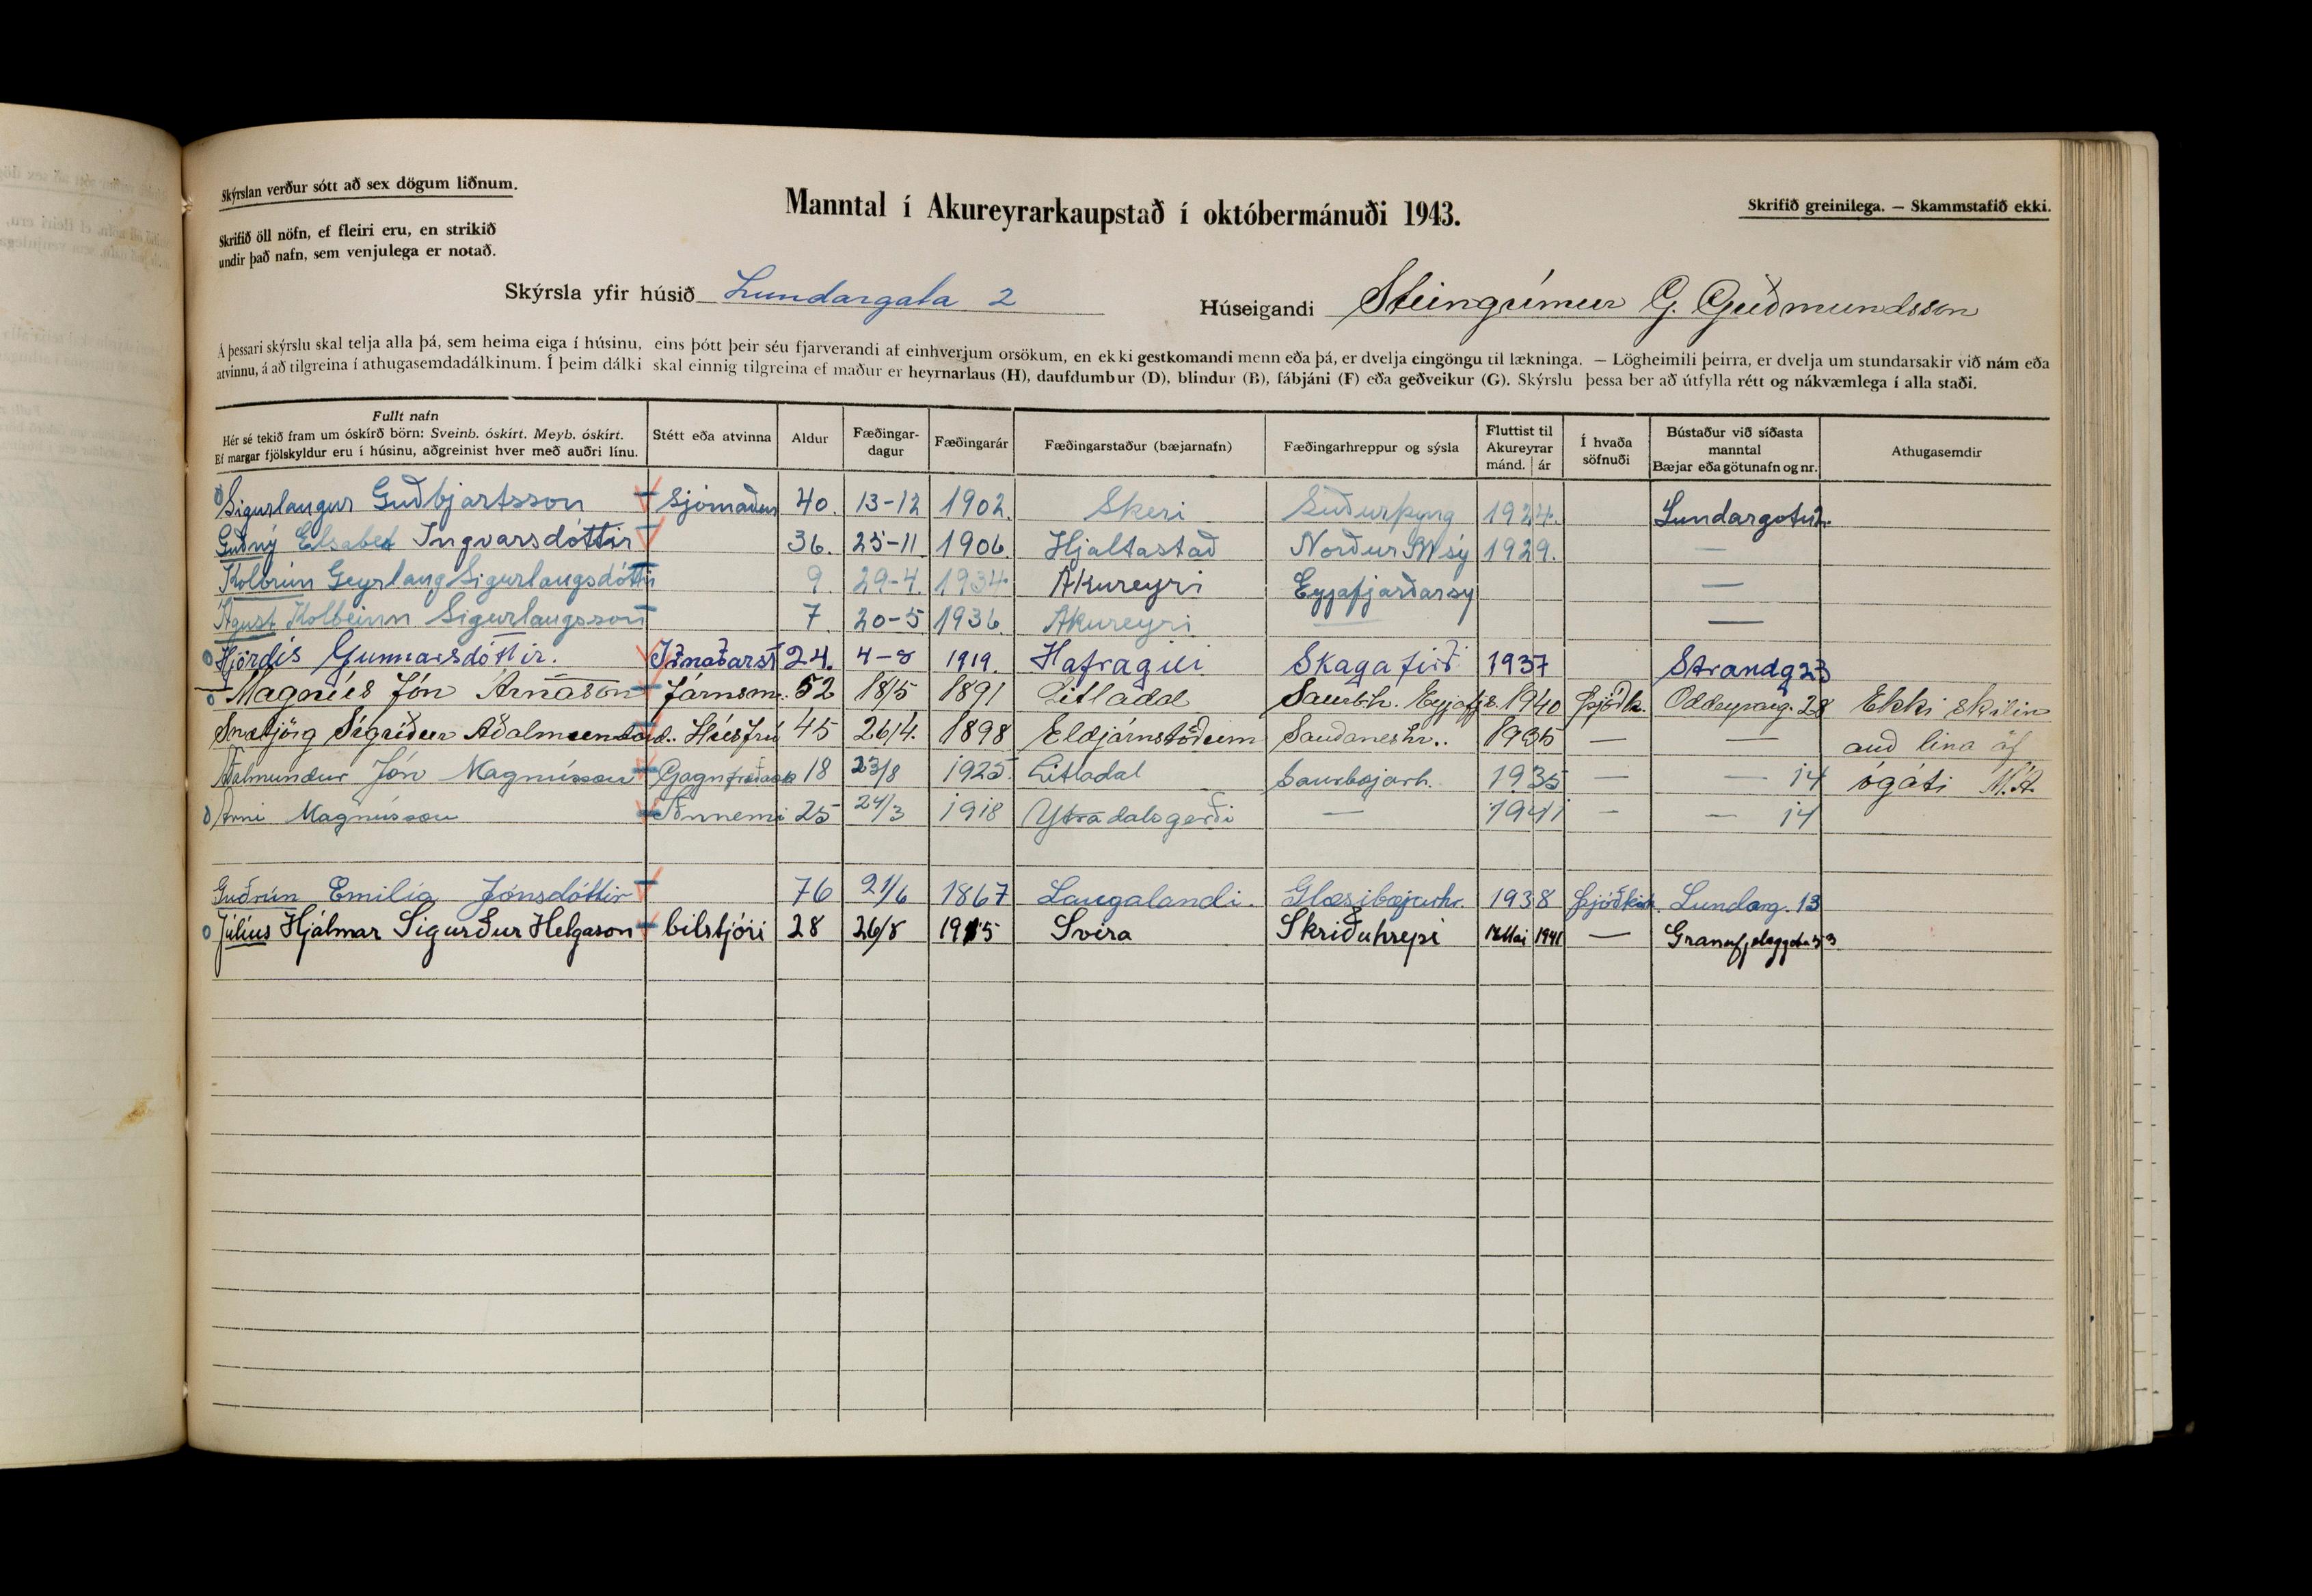 Skýrslan verður sótt að sex dögum liðnum.
Skrifið öll nöfn, ef fleiri eru, en strikið
undir það nafn, sem venjulega er notað.
Manntal í Akureyrarkaupstað í októbermánuði 1943.
Skrifið greinilega. — Skammstafið ekki.
Skýrsla yfir húsið Lundargata 2
Húseigandi Steingrímur G. Guðmundsson
Á þessari skýrslu skal telja alla þá, sem heima eiga í húsinu, eins þótt þeir séu fjarverandi af einhverjum orsökum, en ekki gestkomandi menn eða þá, er dvelja eingöngu til lækninga. — Lögheimili þeirra, er dvelja um stundarsakir við nám eða
atvinnu, á að tilgreina í athugasemdadálkinum. Í þeim dálki skal einnig tilgreina ef maður er heyrnarlaus (H), daufdumbur (D), blindur (B), fábjáni (F) eða geðveikur (G). Skýrslu þessa ber að útfylla rétt og nákvæmlega í alla staði.
Fullt nafn
Hér sé tekið fram um óskírð börn: Sveinb. óskírt. Meyb. óskírt.
Ef margar fjölskyldur eru í húsinu, aðgreinist hver með auðri línu.
Stétt eða atvinna
Aldur
Fæðingar-
dagur
Fæðingarár
Fæðingarstaður (bæjarnafn)
Fæðingarhreppur og sýsla
Fluttist til
Akureyrar
mánd. ár
Í hvaða
söfnuði
Bústaður við síðasta
manntal
Bæjar eða götunafn og nr.
Athugasemdir
Sigurlaugur Guðbjartsson Sjómaður 40. 13-12 1902. Skeri Suðurþyng 1924. Lundargotu 2.
Guðný Elsabet Ingvarsdóttir 36. 25-11 1906. Hjaltastað Norður Msý 1929. —
Kolbrún Geyrlaug Sigurlaugsdóttir 9. 29-4. 1934. Akureyri Eyjafjarðarsy —
Águst Kolbeinn Sigurlaugsson 7. 20-5 1936. Akureyri —
Hjördís Gunnarsdóttir. Iðnaðarst 24. 4-8 1919. Hafragili Skagafirð 1937 Strandg 23
Magnús Jón Árnason Járnsm. 52 18/5 1891 Litladal Saurbh. Eyjafjs. 1940 Þjóðk. Oddeyrarg. 28 Ekki skilin
Snæbjörg Sigríður Aðalmundard. Húsfrú 45 26/4. 1898 Eldjárnstöðum Sauðaneshr.. 1935 — — auð lína af
Aðalmundur Jón Magnússon 18 23/8 1925. Litladal Saurbæjarh. 1935 — — 14 ógáti M.Á.
Árni Magnússon Iðnnemi 25 24/3 1918 Ytradalsgerði — 1941 — — 14
Guðrún Emilía Jónsdóttir 76 21/6 1867 Laugalandi. Glæsibæjarhr. 1938 Þjóðkirk. Lundarg. 13
Júlíus Hjálmar Sigurður Helgason bilstjóri 28 26/8 1915 Svíra Skriðuhrepi Mai 1941 —